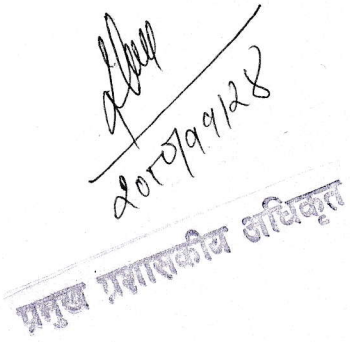 २०८०/११/२४
प्रमुख प्रशासकीय अधिकृत